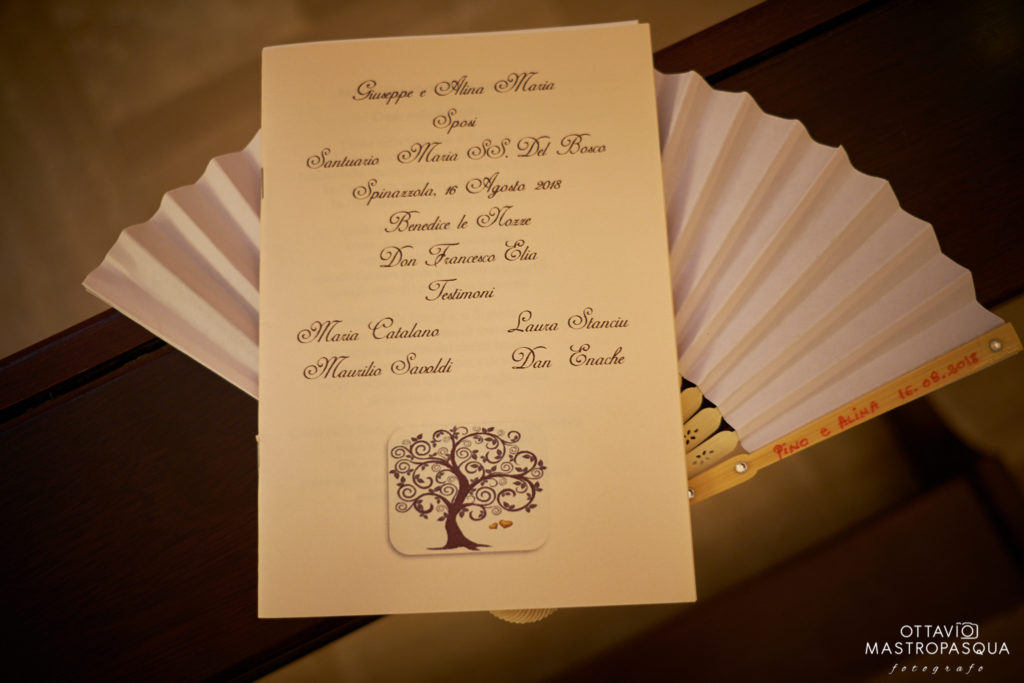 Giuseppe e Alina Maria
Sposi
Santuario Maria SS. Del Bosco
Spinazzola, 16 Agosto 2018
Benedice le Nozze
Don Francesco Elia
Testimoni
Maria Catalano Laura Stanciu
Maurilio Savoldi Dan Enache
PINO e ALINA 16.08.2018
OTTAVIO
MASTROPASQUA
fotografo